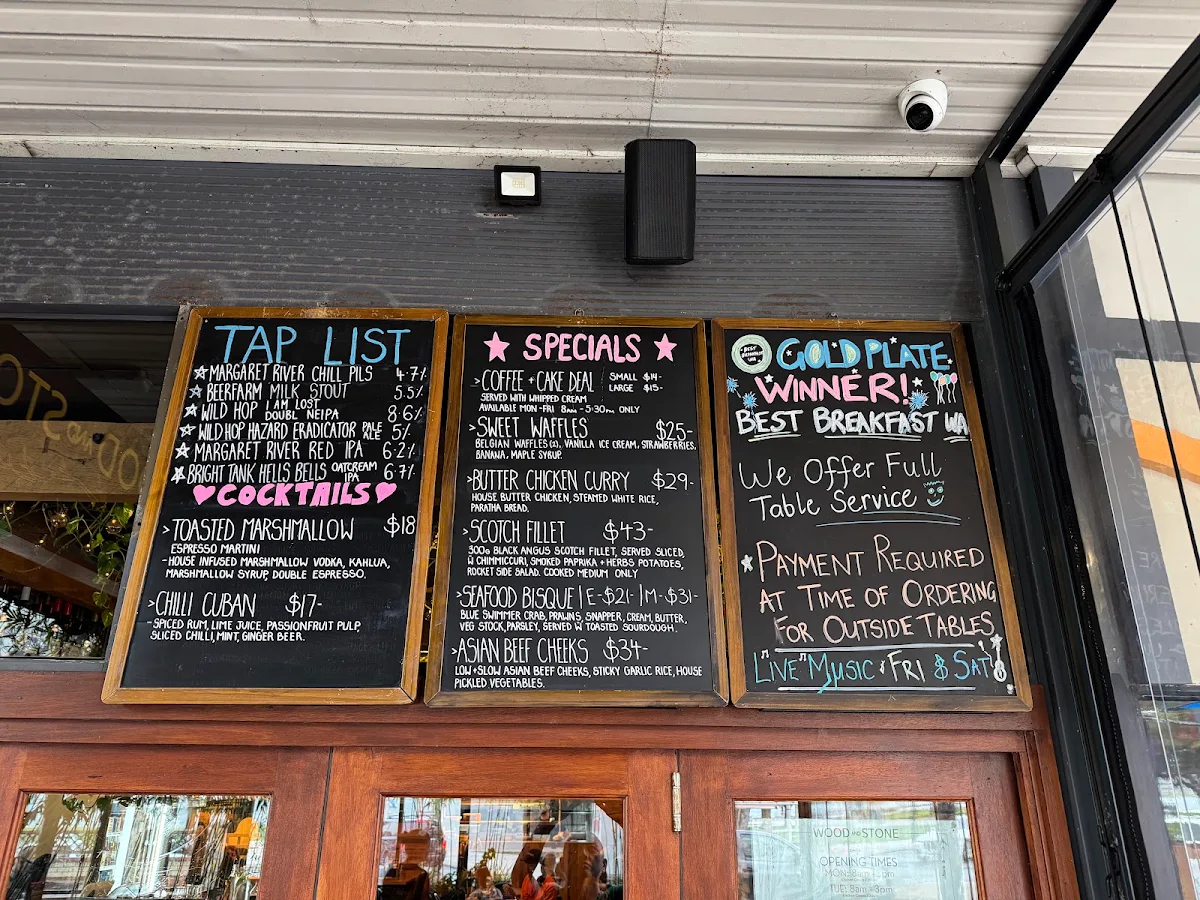 TAP LIST
MARGARET RIVER CHILL PILS 4.7%
BEERFARM MILK STOUT 5.5%
WILD HOP I AM LOST DOUBL NEIPA 8.6%
WILD HOP HAZARD ERADICATOR PALE ALE 5%
MARGARET RIVER RED IPA 6.2%
BRIGHT TANK HELLS BELLS OATCREAM IPA 6.7%
COCKTAILS
>TOASTED MARSHMALLOW $18
ESPRESSO MARTINI
-HOUSE INFUSED MARSHMALLOW VODKA, KAHLUA,
MARSHMALLOW SYRUP, DOUBLE ESPRESSO.
>CHILLI CUBAN $17-
-SPICED RUM, LIME JUICE, PASSIONFRUIT PULP,
SLICED CHILLI, MINT, GINGER BEER.
SPECIALS
>COFFEE + CAKE DEAL SMALL $14-
LARGE $15-
SERVED WITH WHIPPED CREAM
AVAILABLE MON-FRI 8am-5:30pm ONLY
>SWEET WAFFLES $25-
BELGIAN WAFFLES (2), VANILLA ICE CREAM, STRAWBERRIES,
BANANA, MAPLE SYRUP.
>BUTTER CHICKEN CURRY $29-
HOUSE BUTTER CHICKEN, STEAMED WHITE RICE,
PARATHA BREAD.
>SCOTCH FILLET $43-
300g BLACK ANGUS SCOTCH FILLET, SERVED SLICED,
W CHIMMICCURI, SMOKED PAPRIKA + HERBS POTATOES,
ROCKET SIDE SALAD. COOKED MEDIUM ONLY
>SEAFOOD BISQUE | E-$21- | M-$31-
BLUE SWIMMER CRAB, PRAWNS, SNAPPER, CREAM, BUTTER,
VEG STOCK, PARSLEY, SERVED W TOASTED SOURDOUGH.
>ASIAN BEEF CHEEKS $34-
LOW+SLOW ASIAN BEEF CHEEKS, STICKY GARLIC RICE, HOUSE
PICKLED VEGETABLES.
BEST BREAKFAST WA
GOLD PLATE
WINNER!
BEST BREAKFAST WA
We Offer Full
Table Service
PAYMENT REQUIRED
AT TIME OF ORDERING
FOR OUTSIDE TABLES
LIVE MUSIC FRI & SAT
WOOD AND STONE
OPENING TIMES
MON: 8am - pm
TUE: 8am - 3pm